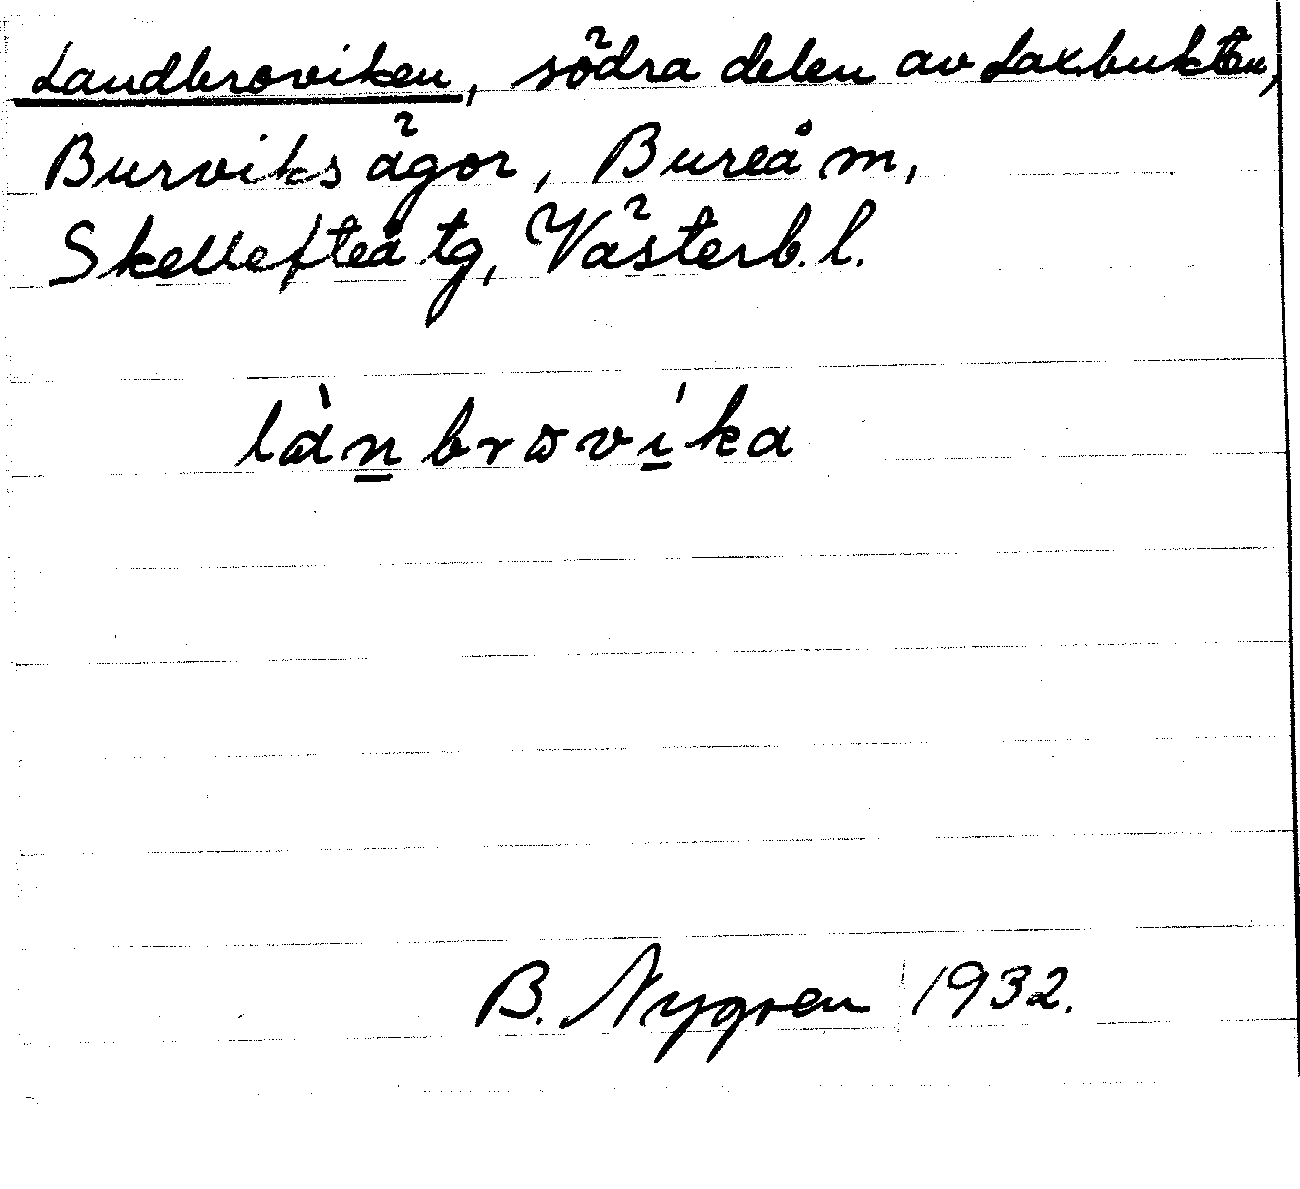 Landbroviken, södra delen av Laxbukten,
Burviks ägor, Bureå m,
Skellefteå tg, Västerb. l.
làn̲broví̲ka
B. Nygren 1932.